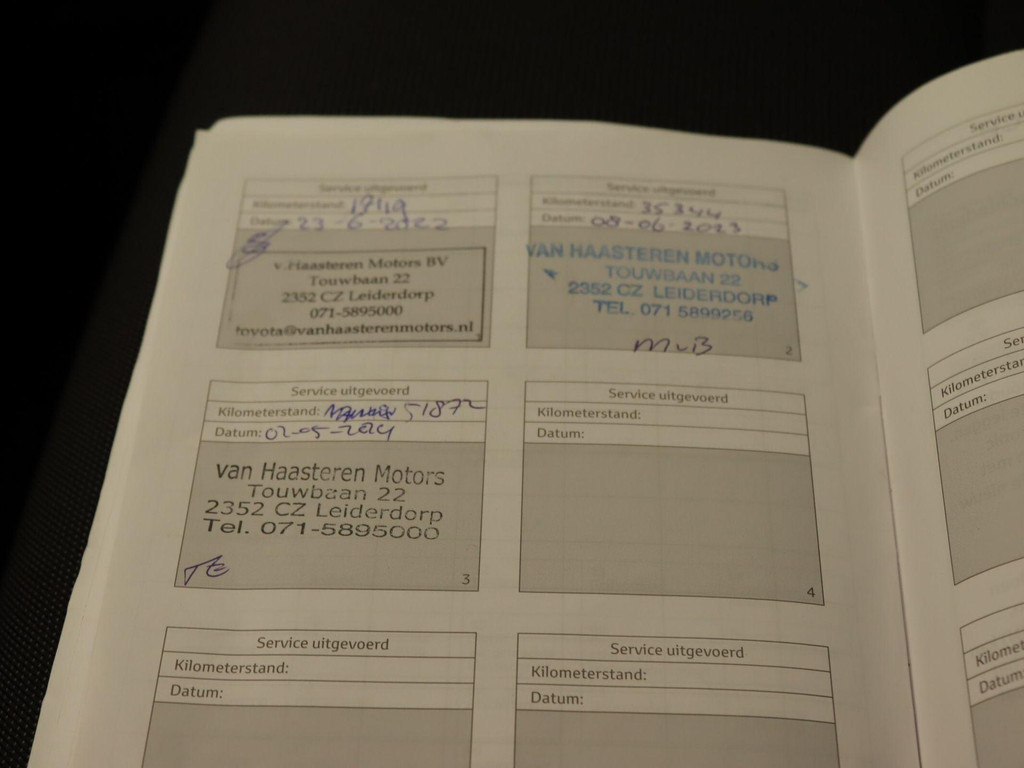 Service uitgevoerd
Kilometerstand:
Datum: 23-6-2022
v.Haasteren Motors BV
Touwbaan 22
2352 CZ Leiderdorp
071-5895000
toyota@vanhaasterenmotors.nl
Service uitgevoerd
Kilometerstand: 35344
Datum: 08-06-2023
VAN HAASTEREN MOTORS
TOUWBAAN 22
2352 CZ LEIDERDORP
TEL. 071 5899256
MvB
2
Service uitgevoerd
Kilometerstand: 51872
Datum: 02-05-2024
van Haasteren Motors
Touwbaan 22
2352 CZ Leiderdorp
Tel. 071-5895000
TE
3
Service uitgevoerd
Kilometerstand:
Datum:
4
Service uitgevoerd
Kilometerstand:
Datum:
Service uitgevoerd
Kilometerstand:
Datum:
Service u
Kilometerstand:
Datum:
Ser
Kilometerstan
Datum:
Kilomete
Datum